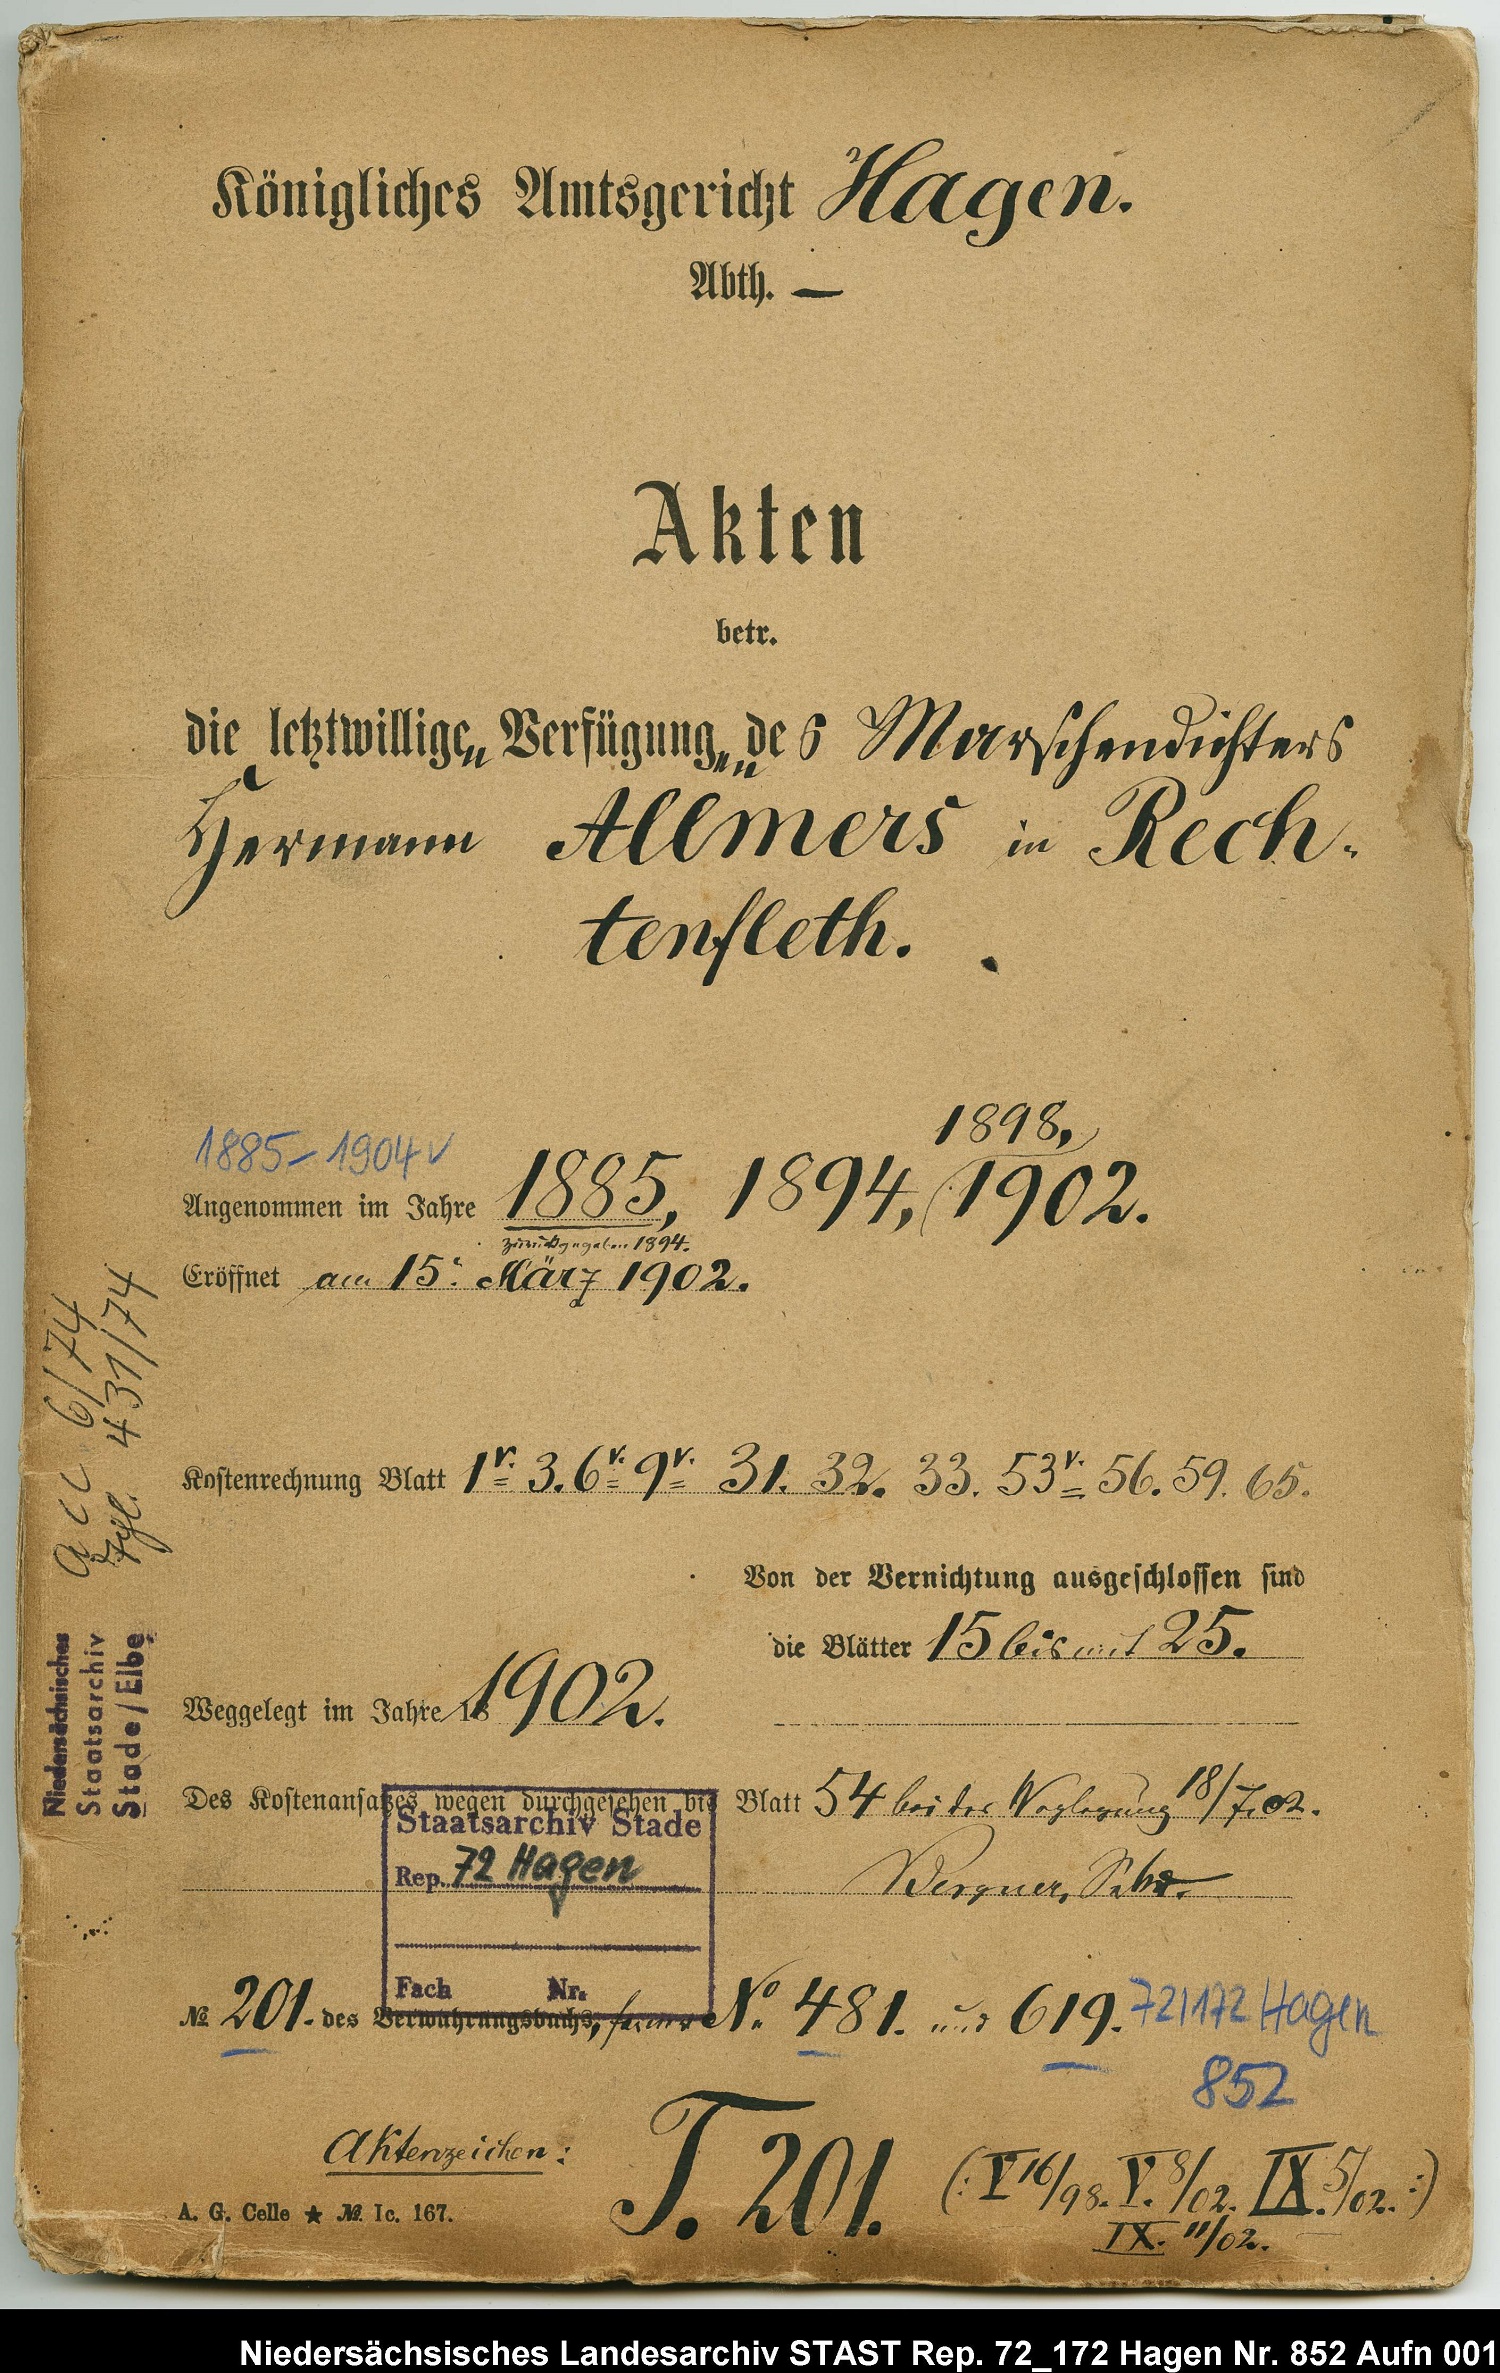 Königliches Amtsgericht Hagen.
Abth. —
Akten
betr.
die letztwilligen Verfügungen des Marschendichters
Hermann Allmers in Rech-
tenfleth.
1898,
1885-1904 v
Angenommen im Jahre 1885, 1894, 1902.
zurückgegeben 1894.
Eröffnet am 15. März 1902.
Acc 6/74
431/74
Kostenrechnung Blatt 1v. 3. 6v. 9v. 31. 32. 33. 53v. 56. 59. 65.
Von der Vernichtung ausgeschlossen sind
die Blätter 15 bis mit 25.
Weggelegt im Jahre 18 1902.
Niedersächsisches
Staatsarchiv
Stade/Elbe
Des Kostenansatzes wegen durchgesehen bis Blatt 54 bei der Weglegung 18/7.02.
Staatsarchiv Stade
Rep. 72 Hagen
Bergner,
Fach Nr.
№ 201. des Verwahrungsbuchs, ferner No. 481. und 619.
72/172 Hagen
852
Aktenzeichen: T. 201. (: V 16/98. V. 8/02. IX. 5/02. :)
IX. 11/02.
A. G. Celle ★ №. Ic. 167.
Niedersächsisches Landesarchiv STAST Rep. 72_172 Hagen Nr. 852 Aufn 001